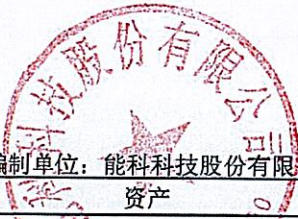 科技股份有限公司
编制单位：能科科技股份有限
资产